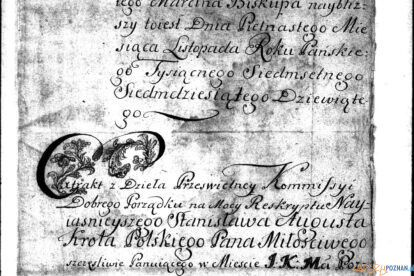 tego Marcina Biskupa naybliż-
szy toiest Dnia Pietnastego Mie-
siąca Listopada Roku Pańskie-
go Tysiącnego Siedmsetnego
Siedmdziesiątego Dziewiąte-
go
Extrakt z Dzieła Prześwietney Kommissyi
Dobrego Porządku na Mocy Reskryptu Nay-
iaśnieyszego Stanisława Augusta
Krola Polskiego Pana Miłosciwego
szczęsliwie Panuiącego w Miescie J.K.Mci Poz-
POZNAŃ.PL